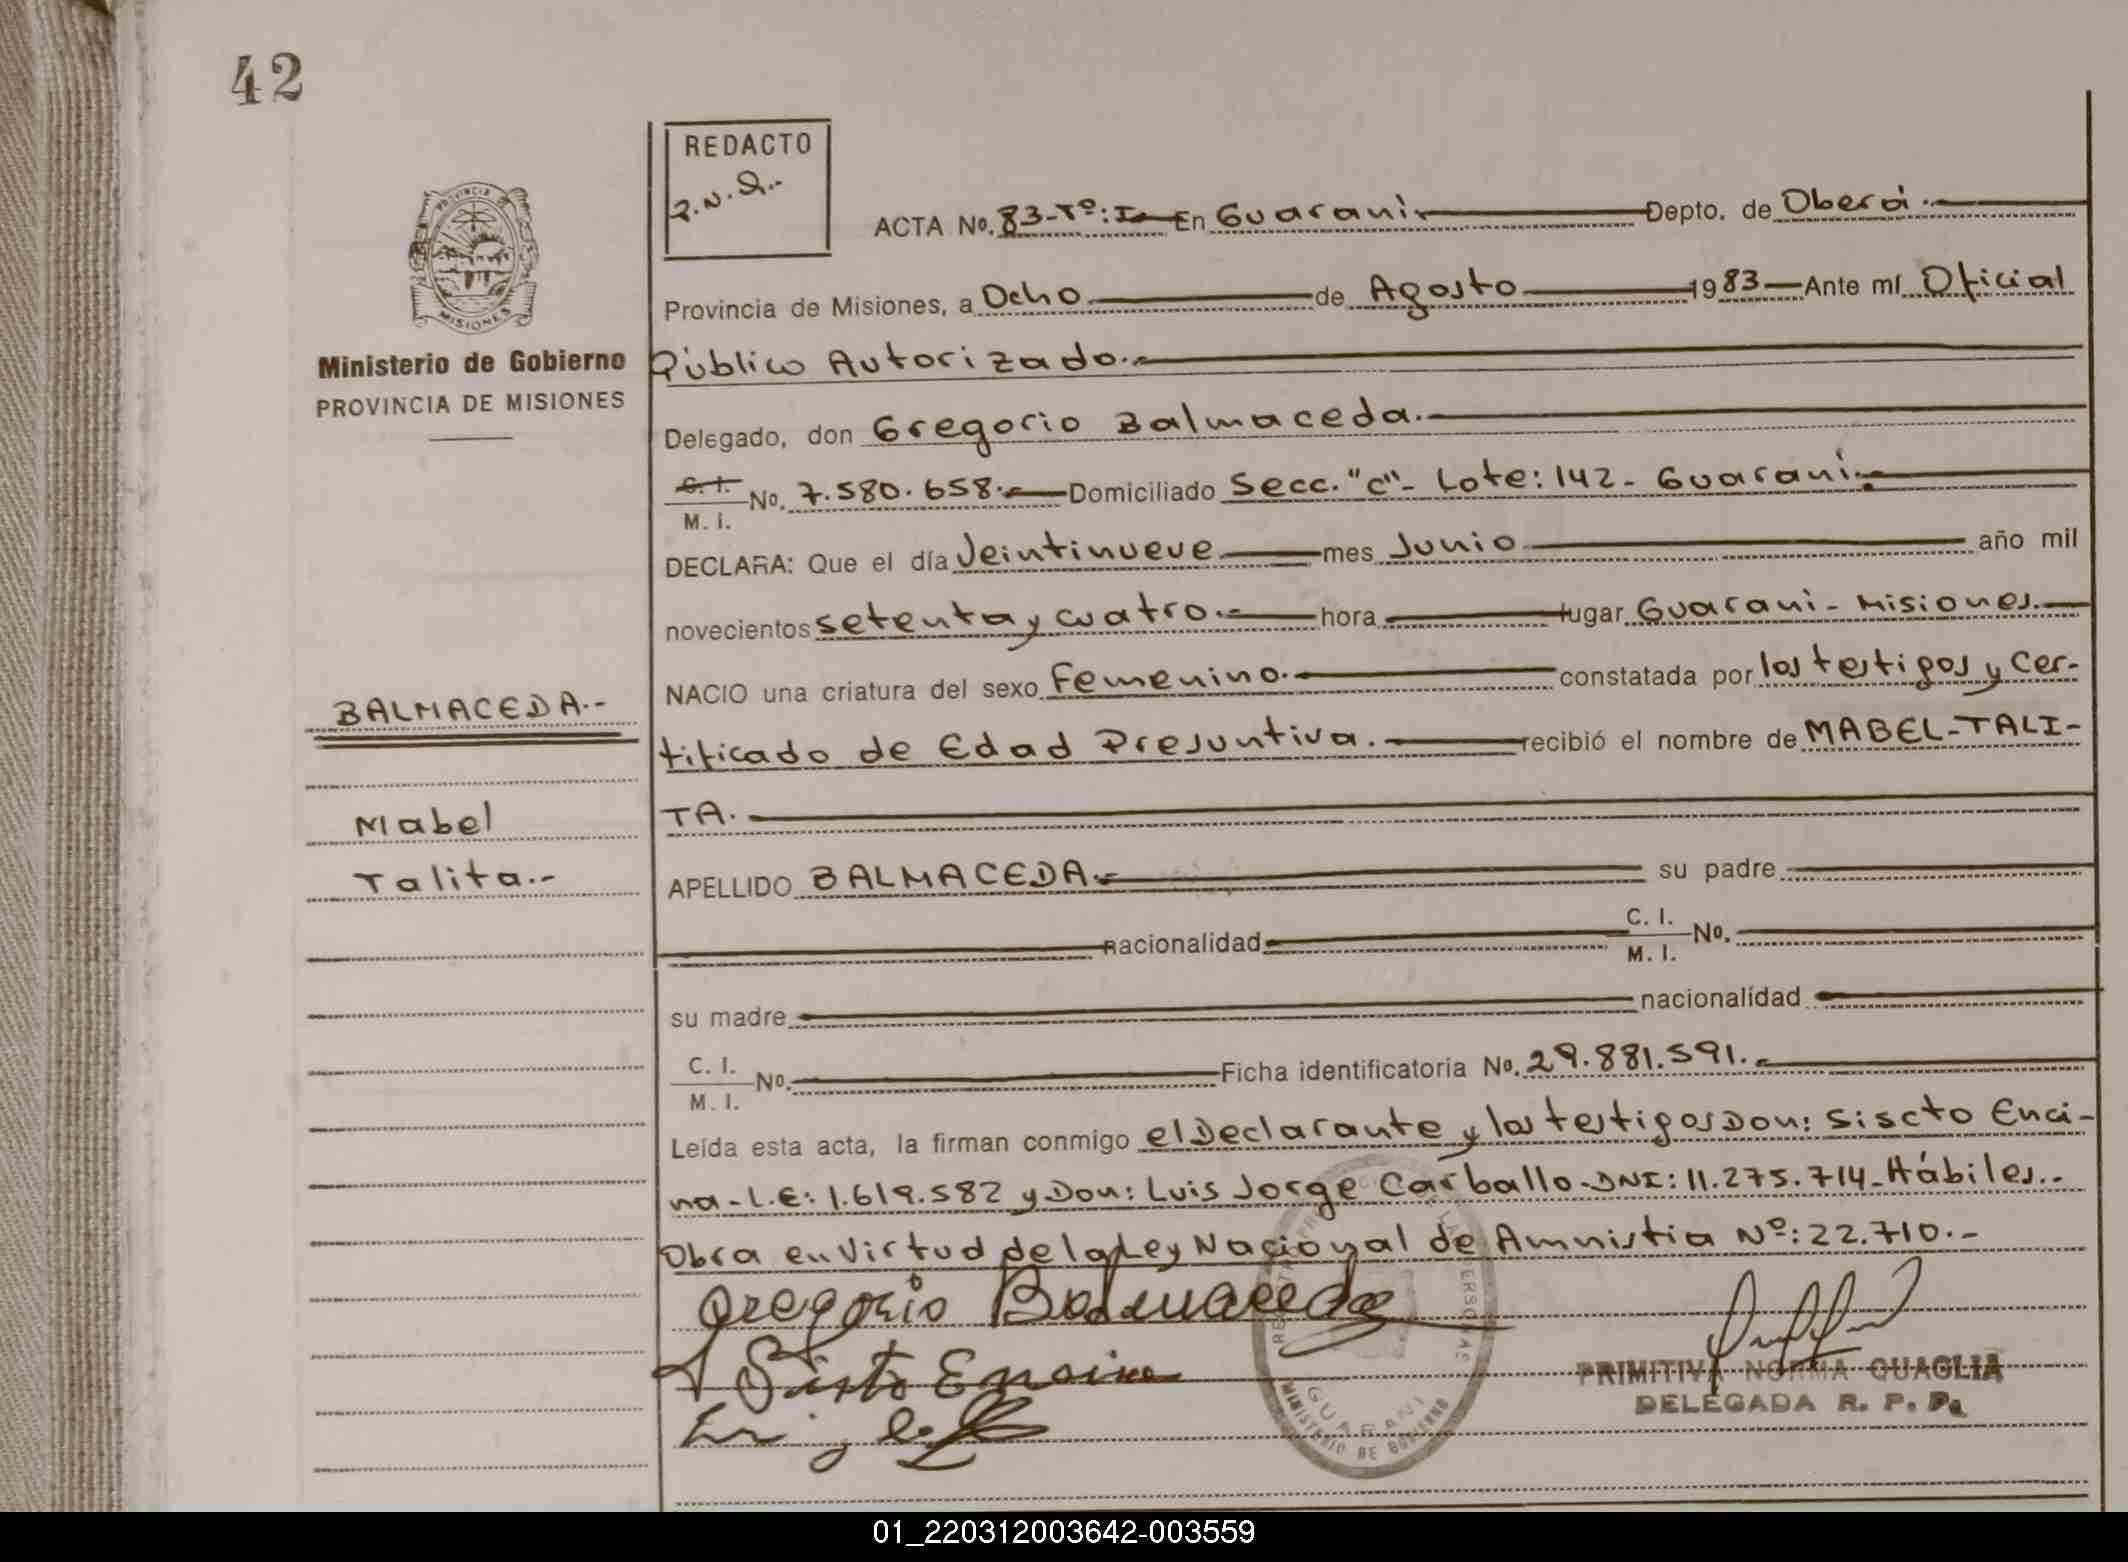 42
REDACTO
ACTA No. 83-Tº: I En Guaraní Depto. de Oberá.-
Provincia de Misiones, a Ocho de Agosto 1983 Ante mí Oficial
Público Autorizado.-
Delegado, don Gregorio Balmaceda.-
C. I.
M. I. No. 7.580.658.- Domiciliado Secc. "C"- Lote: 142- Guaraní.-
DECLARA: Que el día Veintinueve mes Junio año mil
novecientos setenta y cuatro.- hora lugar Guaraní- Misiones.-
NACIO una criatura del sexo Femenino.- constatada por los testigos y Cer-
tificado de Edad Presuntiva.- recibió el nombre de MABEL-TALI-
TA.-
APELLIDO BALMACEDA.- su padre
nacionalidad C. I.
M. I. No.
su madre nacionalidad
C. I.
M. I. No. Ficha identificatoria No. 29.881.591.-
Leída esta acta, la firman conmigo el Declarante y los testigos Don: Siscto Enci-
na-L.E: 1.619.582 y Don: Luis Jorge Carballo-DNI: 11.275.714-Hábiles.-
Obra en Virtud de la Ley Nacional de Amnistia Nº: 22.710.-
Gregorio Balmaceda
Sisto Encina
PRIMITIVA NORMA QUAGLIA
DELEGADA R. P. Ps
GUARANI
MINISTERIO DE GOBIERNO
PROVINCIA
MISIONES
Ministerio de Gobierno
PROVINCIA DE MISIONES
BALMACEDA.-
Mabel
Talita.-
01_220312003642-003559